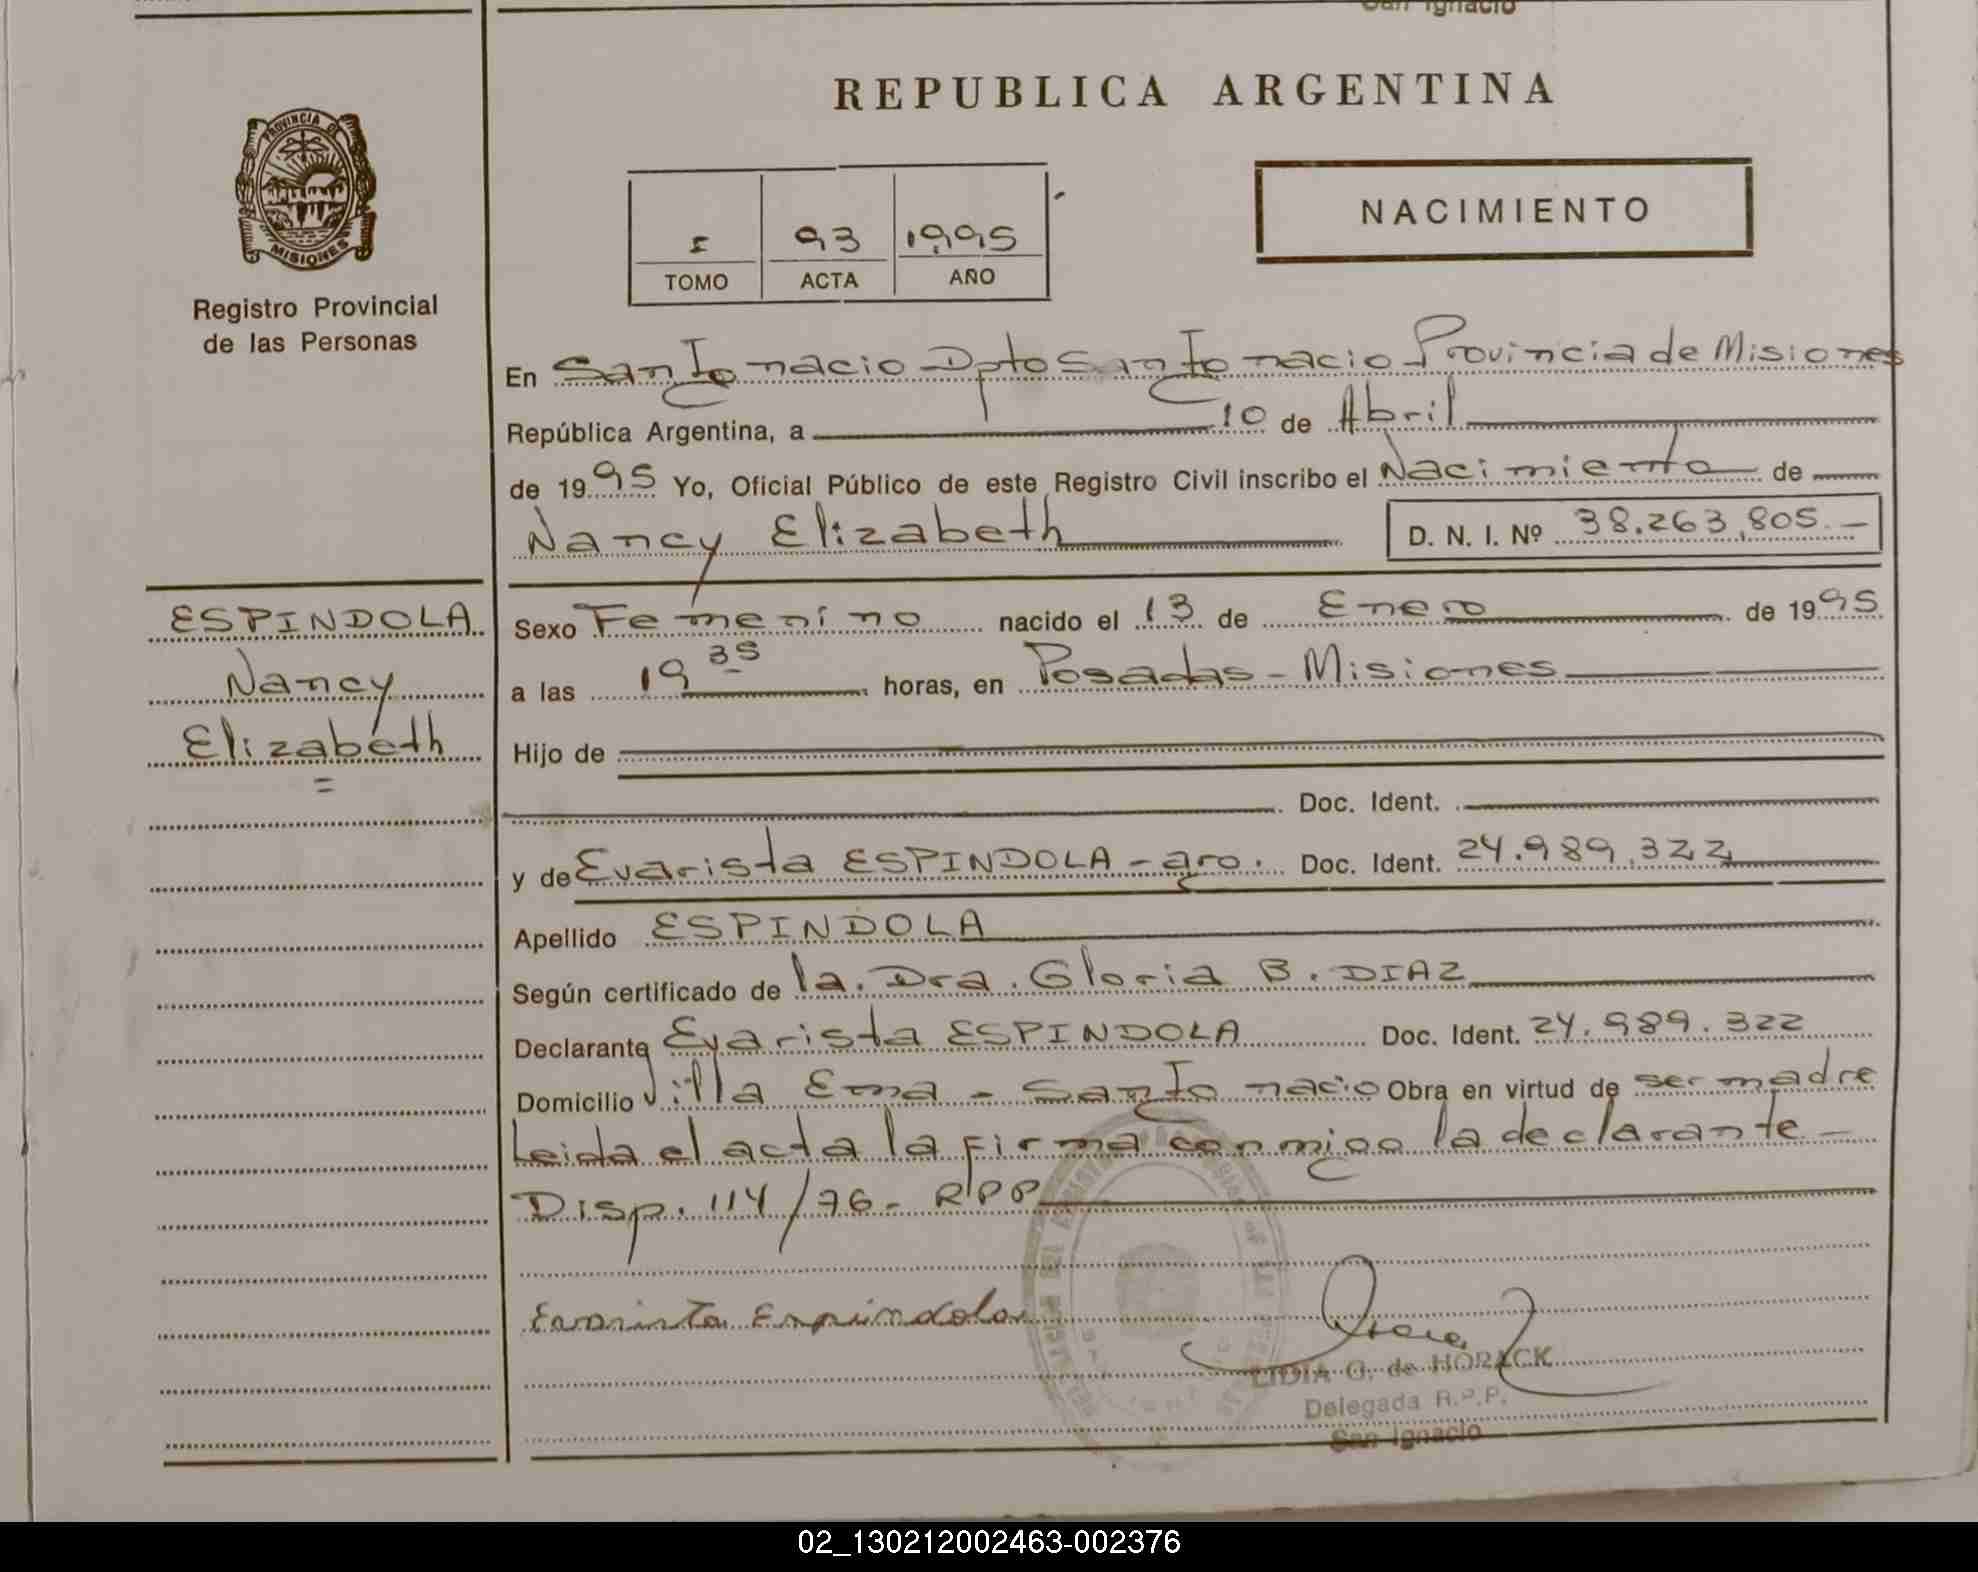 San Ignacio
REPUBLICA ARGENTINA
PROVINCIA DE
MISIONES
Registro Provincial
de las Personas
I 93 1995
TOMO ACTA AÑO
NACIMIENTO
En San Ignacio Dpto San Ignacio Provincia de Misiones
República Argentina, a 10 de Abril
de 1995 Yo, Oficial Público de este Registro Civil inscribo el Nacimiento de
Nancy Elizabeth D. N. I. Nº 38.263.805.-
ESPINDOLA
Nancy
Elizabeth
=
Sexo Femenino nacido el 13 de Enero de 1995
a las 19 35 horas, en Posadas - Misiones
Hijo de
Doc. Ident.
y de Evarista ESPINDOLA - arg. Doc. Ident. 24.989.322
Apellido ESPINDOLA
Según certificado de la. Dra. Gloria B. DIAZ
Declarante Evarista ESPINDOLA Doc. Ident. 24.989.322
Domicilio Villa Ema - San Ignacio Obra en virtud de ser madre
Leida el acta la firma conmigo la declarante -
Disp. 114/76- RPP
Evarista Espindola
LIDIA G. de HORACK
Delegada R.P.P.
San Ignacio
02_130212002463-002376